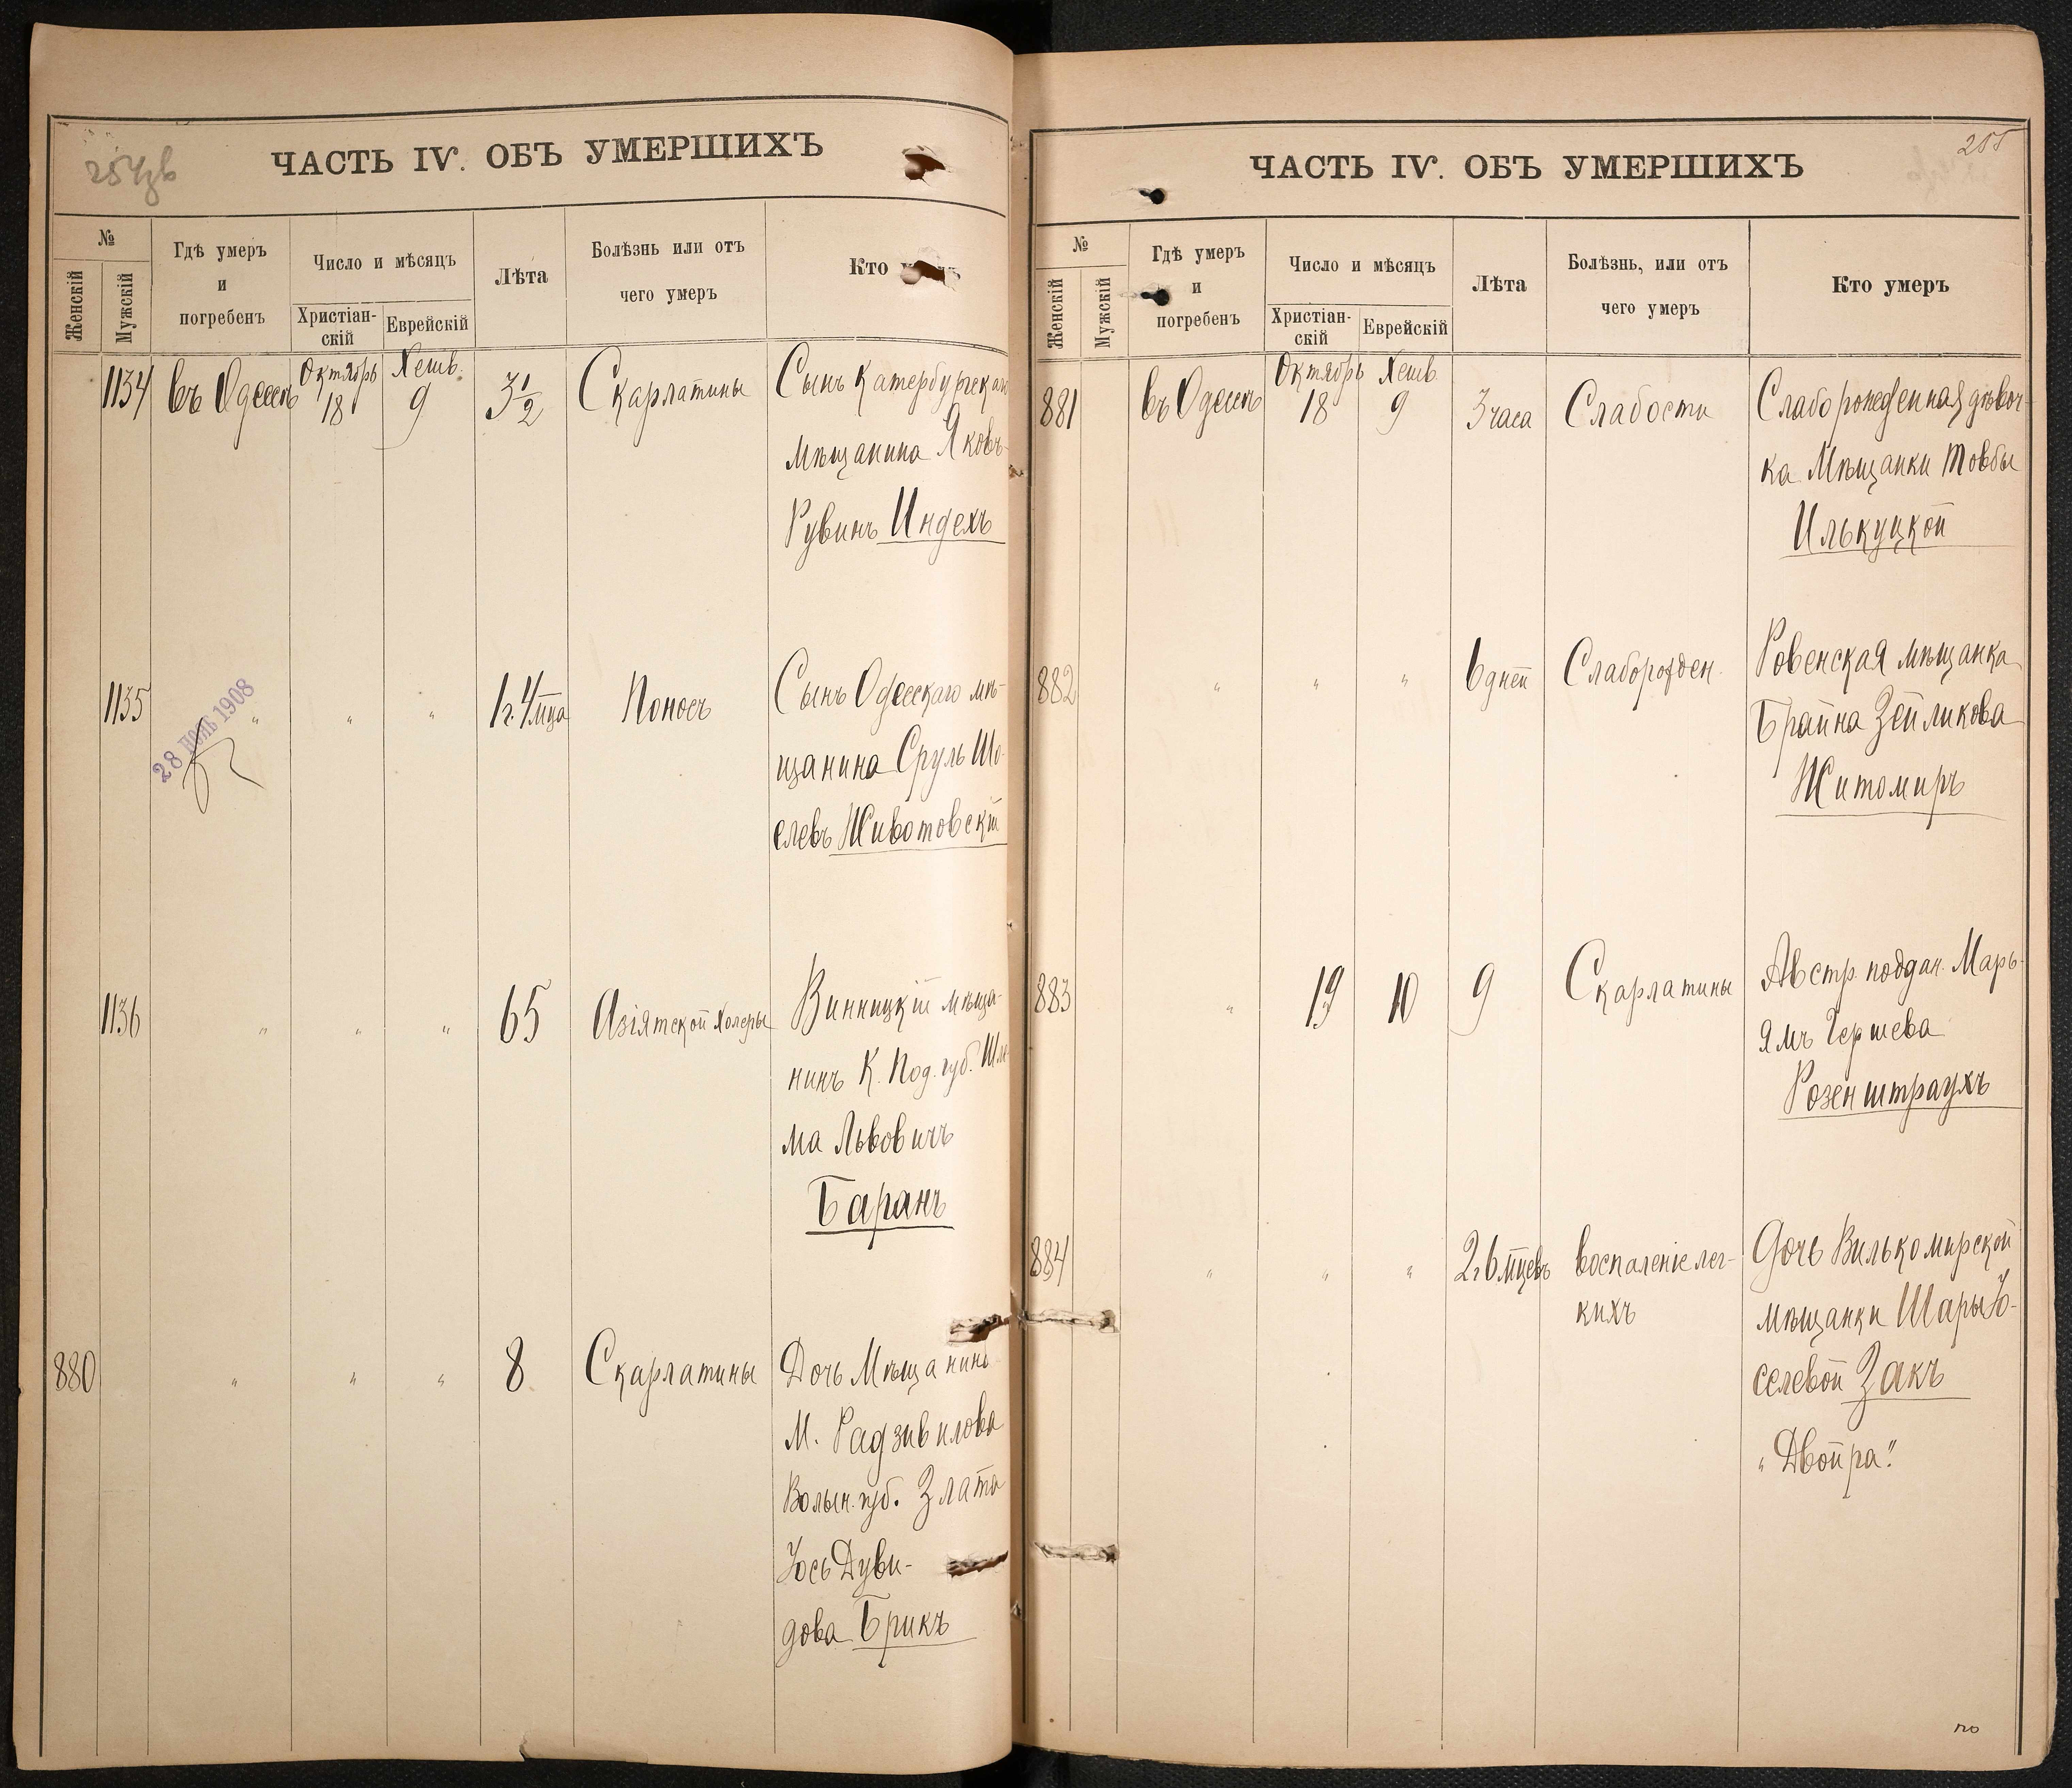 254
ЧАСТЬ IV. ОБЪ УМЕРШИХЪ
№
Женскій
Мужскій
Гдѣ умеръ
и
погребенъ
Число и мѣсяцъ
Христіан-
скій
Еврейскій
Лѣта
Болѣзнь или отъ
чего умеръ
Кто
1134 въ Одессѣ Октябрь 18 Хешв. 9 3 1/2 Скарлатины Сынъ Катербургскаго
мѣщанина Яковъ
Рувинъ Индехъ
1135 " " " 1 г. 4 мца Поносъ Сынъ Одесскаго мѣ-
щанина Сруль Шо-
елевъ Животовскій
28 1908
1136 " " " 65 Азіятской Холеры Винницкій мѣща-
нинъ К. Под. губ. Шле-
ма Львовичъ
Баранъ
880 " " " 8 Скарлатины Дочь Мѣщанина
М. Радзивилова
Волын. губ. Злата
Юсь Дуви-
дова Брикъ
255
ЧАСТЬ IV. ОБЪ УМЕРШИХЪ
№
Женскій
Мужскій
Гдѣ умеръ
и
погребенъ
Число и мѣсяцъ
Христіан-
скій
Еврейскій
Лѣта
Болѣзнь, или отъ
чего умеръ
Кто умеръ
881 въ Одессѣ Октябрь 18 Хешв. 9 3 часа Слабости Слаборожденная дѣвоч-
ка Мѣщанки Товбы
Илькуцкой
882 " " " 6 дней Слаборожден. Ровенская мѣщанка
Брайна Зейликова
Житомиръ
883 " 19 10 9 Скарлатины Австр. поддан. Марь-
ямъ Гершева
Розенштраухъ
884 " " " 2 г 6 мцевъ Воспаленіе лег- Дочь Вилькомирской
кихъ мѣщанки Шары Ю-
селевой Закъ
"Двойра."